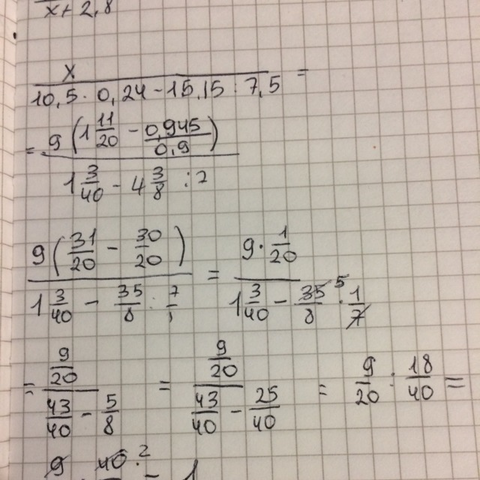 x + 2,8
x / (10,5 · 0,24 − 15,15 : 7,5) =
= 9 (1 11/20 − 0,945/0,9) / (1 3/40 − 4 3/8 : 7)
9 (31/20 − 30/20) / (1 3/40 − 35/8 : 7/1) = 9 · 1/20 / (1 3/40 − 35/8 5 · 1/7)
= 9/20 / (43/40 − 5/8) = 9/20 / (43/40 − 25/40) = 9/20 : 18/40 =
9 · 40 2 = 1